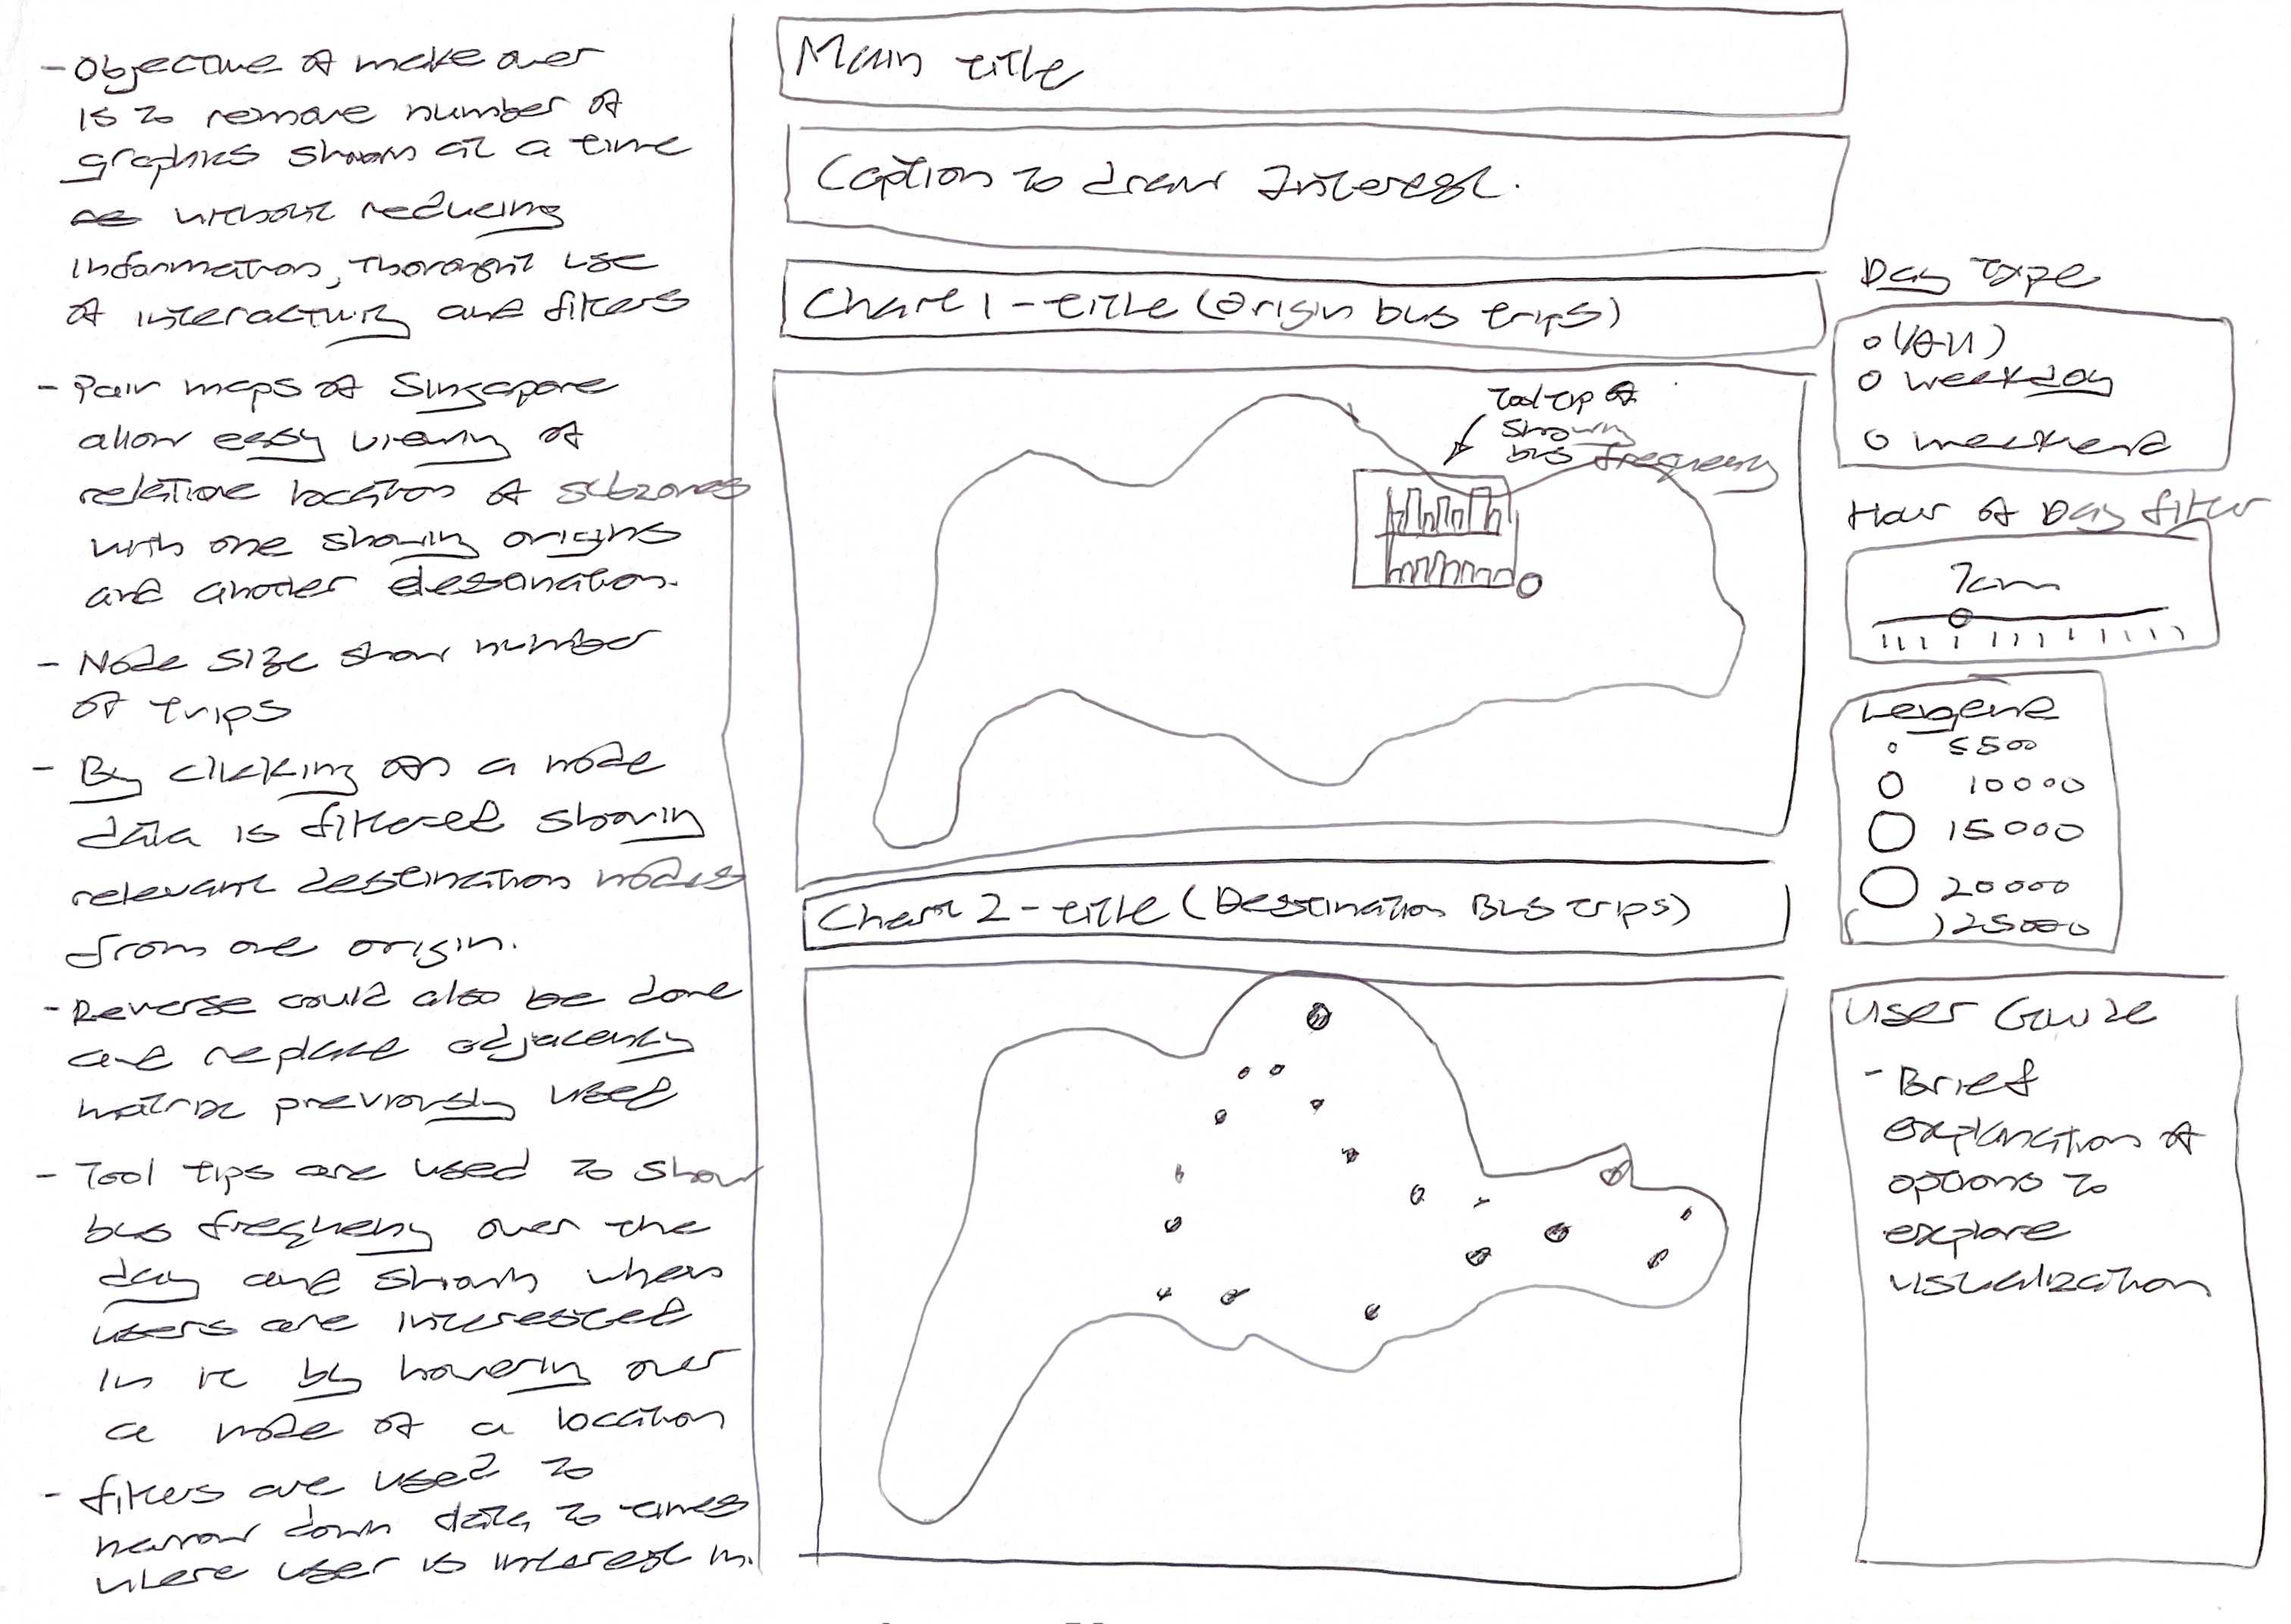 - Objective of make over
is to remove number of
graphics shown at a time
without reducing
information, through use
of interactivity and filters
- Pair maps of Singapore
allow easy viewing of
relative location of subzones
with one showing origins
and another destination.
- Node size show number
of trips
- By clicking on a node
data is filtered showing
relevant destination nodes
from one origin.
- Reverse could also be done
and replace adjacency
matrix previously used
- Tool tips are used to show
bus frequency over the
day and shown when
users are interested
in it by hovering over
a node of a location
- filters are used to
narrow down data to times
where user is interest in.
Main title
Caption to draw interest.
Chart 1 - title (Origin bus trips)
Tool tip of
showing
bus frequency
Chart 2 - title (Destination Bus trips)
Day type
(All)
weekday
weekend
Hour of Day filter
7am
Legend
≤500
10000
15000
20000
25000
User Guide
- Brief
explanation of
options to
explore
visualization